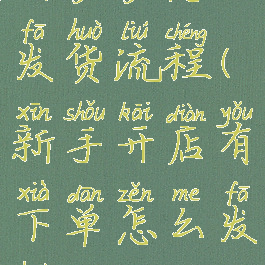 fā huò liú chéng
发货流程(
xīn shǒu kāi diàn yǒu
新手开店有
xià dān zěn me fā
下单怎么发